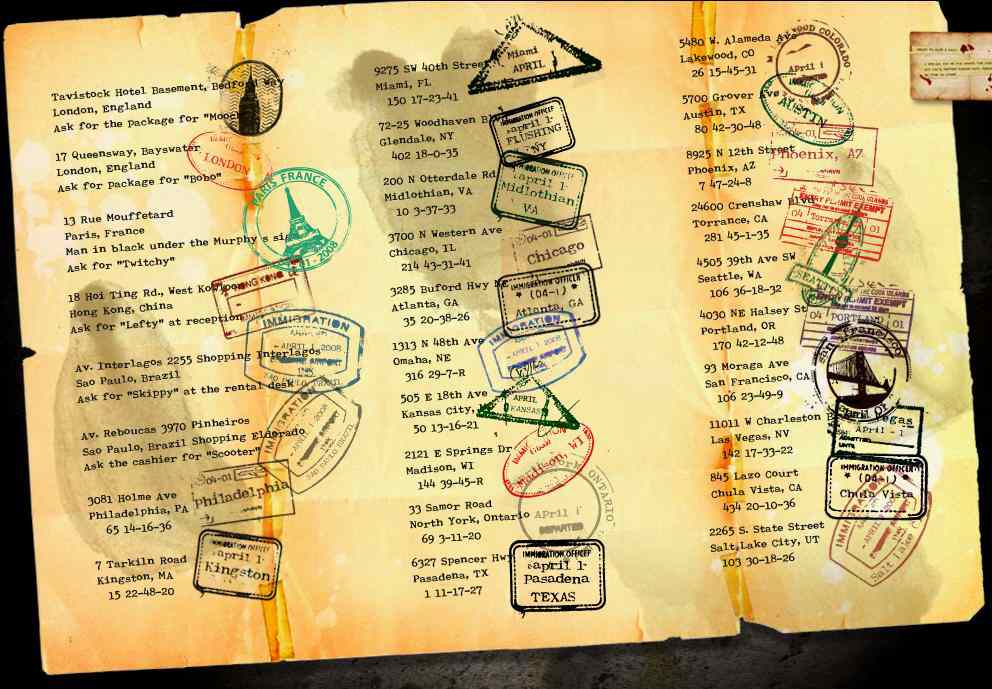 Tavistock Hotel Basement, Bedford Way
London, England
Ask for the package for "Mooch"
17 Queensway, Bayswater
London, England
Ask for package for "Bobo"
LONDON
13 Rue Mouffetard
Paris, France
Man in black under the Murphy's sign
Ask for "Twitchy"
PARIS FRANCE
2008
18 Hoi Ting Rd., West Kowloon
Hong Kong, China
Ask for "Lefty" at reception
HONG KONG
Av. Interlagos 2255 Shopping Interlagos
Sao Paulo, Brazil
Ask for "Skippy" at the rental desk
IMMIGRATION
APRIL 1 2008
SAO PAULO BRAZIL
Av. Reboucas 3970 Pinheiros
Sao Paulo, Brazil Shopping Eldorado
Ask the cashier for "Scooter"
IMMIGRATION
APRIL 1 2008
SAO PAULO BRAZIL
3081 Holme Ave
Philadelphia, PA
65 14-16-36
04-01
Philadelphia
7 Tarkiln Road
Kingston, MA
15 22-48-20
IMMIGRATION OFFICER
april 1
Kingston
9275 SW 40th Street
Miami, FL
150 17-23-41
Miami
APRIL
72-25 Woodhaven Blvd
Glendale, NY
402 18-0-35
IMMIGRATION OFFICER
april 1
FLUSHING
NY
200 N Otterdale Rd
Midlothian, VA
10 3-37-33
IMMIGRATION OFFICER
april 1
Midlothian
VA
3700 N Western Ave
Chicago, IL
214 43-31-41
04-01
Chicago
3285 Buford Hwy NE
Atlanta, GA
35 20-38-26
IMMIGRATION OFFICER
(04-1)
Atlanta, GA
1313 N 48th Ave
Omaha, NE
316 29-7-R
IMMIGRATION
APRIL 1 2008
505 E 18th Ave
Kansas City,
50 13-16-21
APRIL
KANSAS
2121 E Springs Dr
Madison, WI
144 39-45-R
Madison, WI
33 Samor Road
North York, Ontario
69 3-11-20
North York ONTARIO
APril 1
DEPARTED
6327 Spencer Hwy
Pasadena, TX
1 11-17-27
IMMIGRATION OFFICER
april 1
Pasadena
TEXAS
5480 W. Alameda Ave
Lakewood, CO
26 15-45-31
LAKEWOOD COLORADO
APril 1
5700 Grover Ave
Austin, TX
80 42-30-48
AUSTIN
8925 N 12th Street
Phoenix, AZ
7 47-24-8
04-01
Phoenix, AZ
24600 Crenshaw Blvd
Torrance, CA
281 45-1-35
ENTRY PERMIT EXEMPT
04 Torrance 01
4505 39th Ave SW
Seattle, WA
106 36-18-32
SEATTLE
4030 NE Halsey St
Portland, OR
170 42-12-48
ENTRY PERMIT EXEMPT
04 PORTLAND 01
93 Moraga Ave
San Francisco, CA
106 23-49-9
San Francisco
April 01
11011 W Charleston B
Las Vegas, NV
142 17-33-22
Las Vegas
April - 1
845 Lazo Court
Chula Vista, CA
434 20-10-36
IMMIGRATION OFFICER
(04-1)
Chula Vista
2265 S. State Street
Salt Lake City, UT
103 30-18-26
Salt Lake C